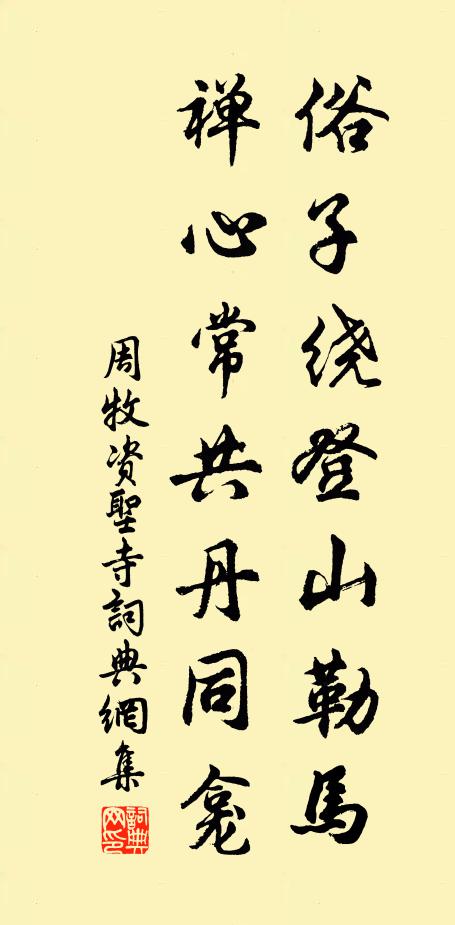 俗子绕登山勒馬
禅心常共丹同龛
周牧资聖寺詞典網集
詞典网印